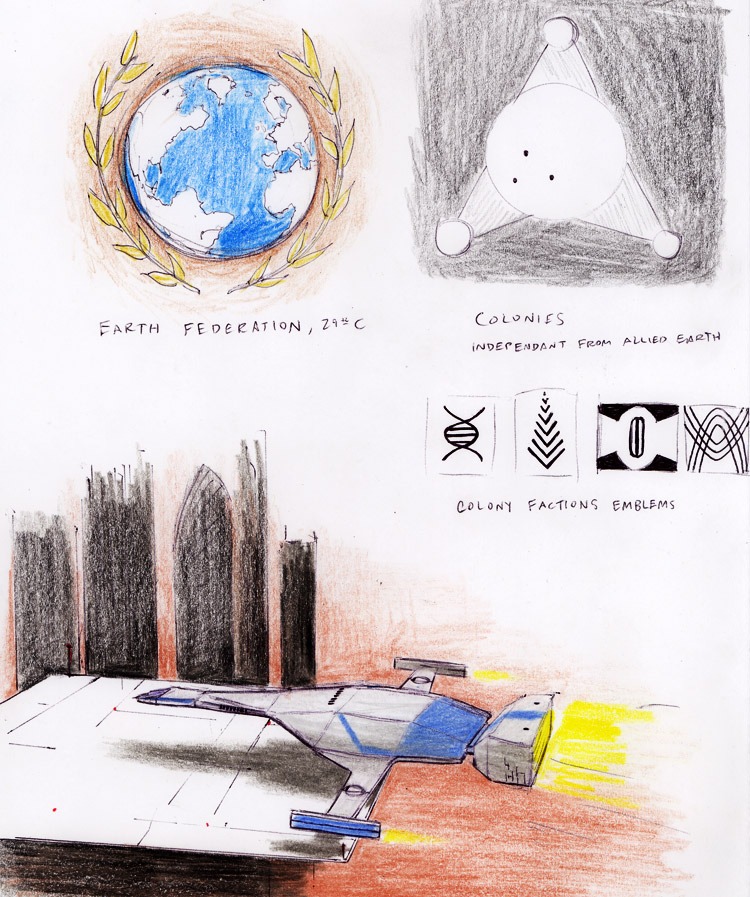 EARTH FEDERATION, 29TH C
COLONIES
INDEPENDANT FROM ALLIED EARTH
COLONY FACTIONS EMBLEMS